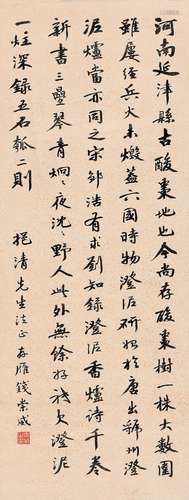 河南延津縣古酸棗地也今尚存酸棗樹一株大數圍
雖屢經兵火未燬蓋六國時物澄泥硯始於唐出虢州澄
泥爐當亦同之宋邹浩有求劉知錄澄泥香爐詩千卷
新書三疊琴青燈夜沈沈野人此外無餘好祇欠澄泥
一炷深錄五石瓠二則
挹清先生法正 存雁錢崇威